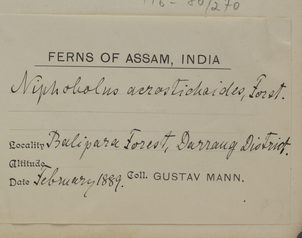 FERNS OF ASSAM, INDIA
Niphobolus acrostichoides, Forst.
Locality Balipara Forest, Darrang District.
Altitude
Date February 1889. Coll. GUSTAV MANN.